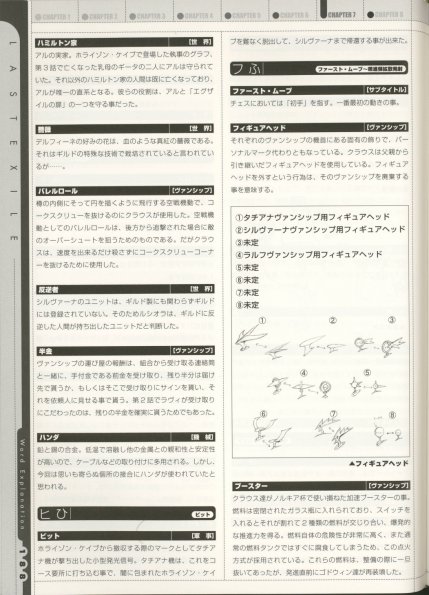 CHAPTER 1
CHAPTER 2
CHAPTER 3
CHAPTER 4
CHAPTER 5
CHAPTER 6
CHAPTER 7
CHAPTER 8
LASTEXILE
ハミルトン家 [世 界]
アルの実家。ホライゾン・ケイブで登場した執事のグラフ、
第3話で亡くなった乳母のギータの二人にアルは守られて
いた。それ以外のハミルトン家の人間は既に亡くなっており、
アルが唯一の直系となる。彼らの役割は、アルと「エグザ
イルの扉」の一つを守る事だった。
薔薇 [世 界]
デルフィーネの好みの花は、血のような真紅の薔薇である。
それはギルドの特殊な技術で栽培されていると言われてい
るが……。
バレルロール [ヴァンシップ]
樽の内側にそって円を描くように飛行する空戦機動で、コ
ークスクリューを抜けるのにクラウスが使用した。空戦機
動としてのバレルロールは、後方から追撃された場合に敵
のオーバーシュートを狙うためのものである。だがクラウ
スは、速度を出来るだけ殺さずにコークスクリューコーナ
ーを抜けるために使用した。
反逆者 [世 界]
シルヴァーナのユニットは、ギルド製にも関わらずギルド
には登録されていない。そのためルシオラは、ギルドに反
逆した人間が持ち出したユニットだと判断した。
半金 [ヴァンシップ]
ヴァンシップの運び屋の報酬は、組合から受け取る連絡筒
と一緒に、手付金である前金を受け取り、残り半分は届け
先で貰うか、もしくはそこで受け取りにサインを貰い、そ
れを依頼人に見せる事で貰う。第2話でラヴィが受け取り
にこだわったのは、残りの半金を確実に貰うためでもあった。
ハンダ [機 械]
鉛と錫の合金。低温で溶融し他の金属との親和性と安定性
が高いので、ケーブルなどの取り付けに多用される。しかし、
今回は思いも寄らぬ箇所の接合にハンダが使われていたと
思われる。
ヒひ ビット
ビット [軍 事]
ホライゾン・ケイブから撤収する際のマークとしてタチア
ナ機が撃ち出した小型発光信号。タチアナ機は、これをコ
ース要所に打ち込む事で、闇に包まれたホライゾン・ケイ
Word Explanation
188
ブを難なく脱出して、シルヴァーナまで帰還する事が出来た。
フふ
ファースト・ムーブ [サブタイトル]
チェスにおいては「初手」を指す。一番最初の動きの事。
フィギュアヘッド [ヴァンシップ]
それぞれのヴァンシップの機首にある固有の飾りで、パー
ソナルマーク代わりともなっている。クラウスは父親から
引き継いだフィギュアヘッドを使用している。フィギュア
ヘッドを外すという行為は、そのヴァンシップを廃棄する
事を意味する。
①タチアナヴァンシップ用フィギュアヘッド
②シルヴァーナヴァンシップ用フィギュアヘッド
③未定
④ラルフヴァンシップ用フィギュアヘッド
⑤未定
⑥未定
⑦未定
⑧未定
① ② ③
④ ⑤
⑥ ⑦ ⑧
▲フィギュアヘッド
ブースター [ヴァンシップ]
クラウス達がノルキア杯で使い損ねた加速ブースターの事。
燃料は密閉されたガラス瓶に入れられており、スイッチを
入れるとそれが割れて2種類の燃料が交じり合い、爆発的
な推進力を得る。燃料自体の危険性が非常に高く、また通
常の燃料タンクではすぐに腐食してしまうため、この点火
方式が採用されている。これらの燃料は、整備の際に一旦
抜いてあったが、発進直前にゴドウィン達が再装填した。